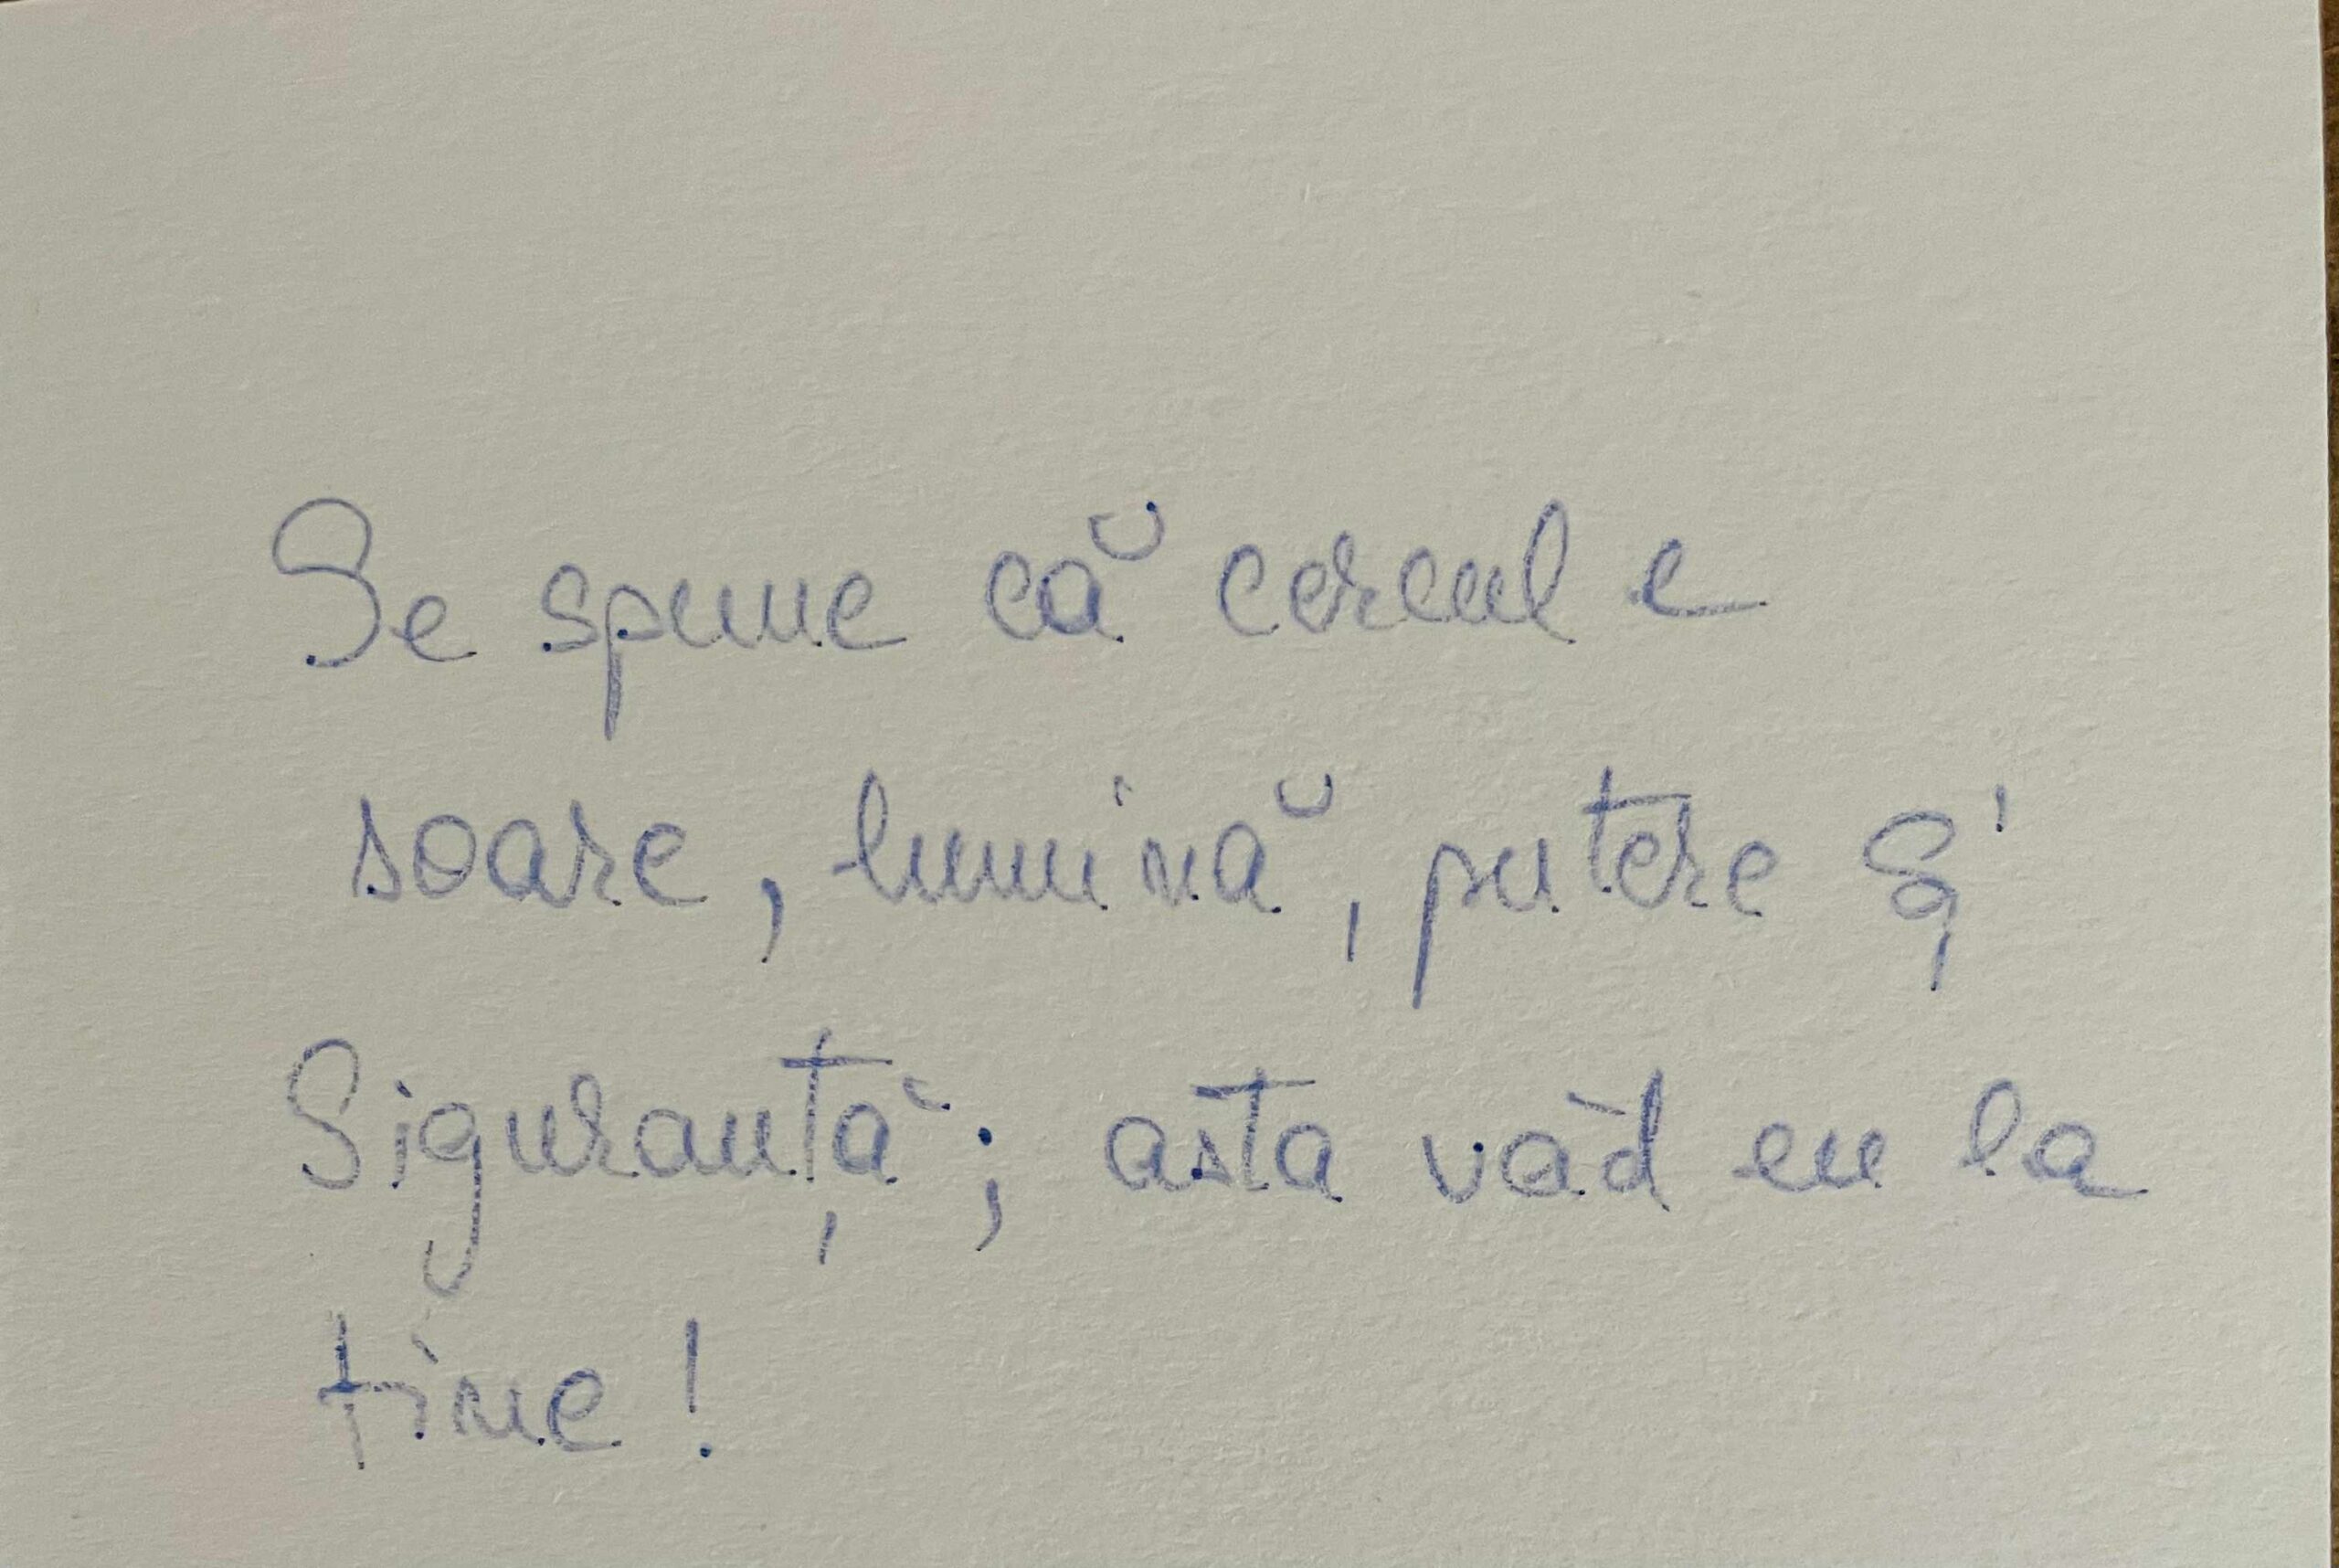 Se spune că cercul e
soare, lumină, putere și
Siguranță; asta văd eu la
tine!